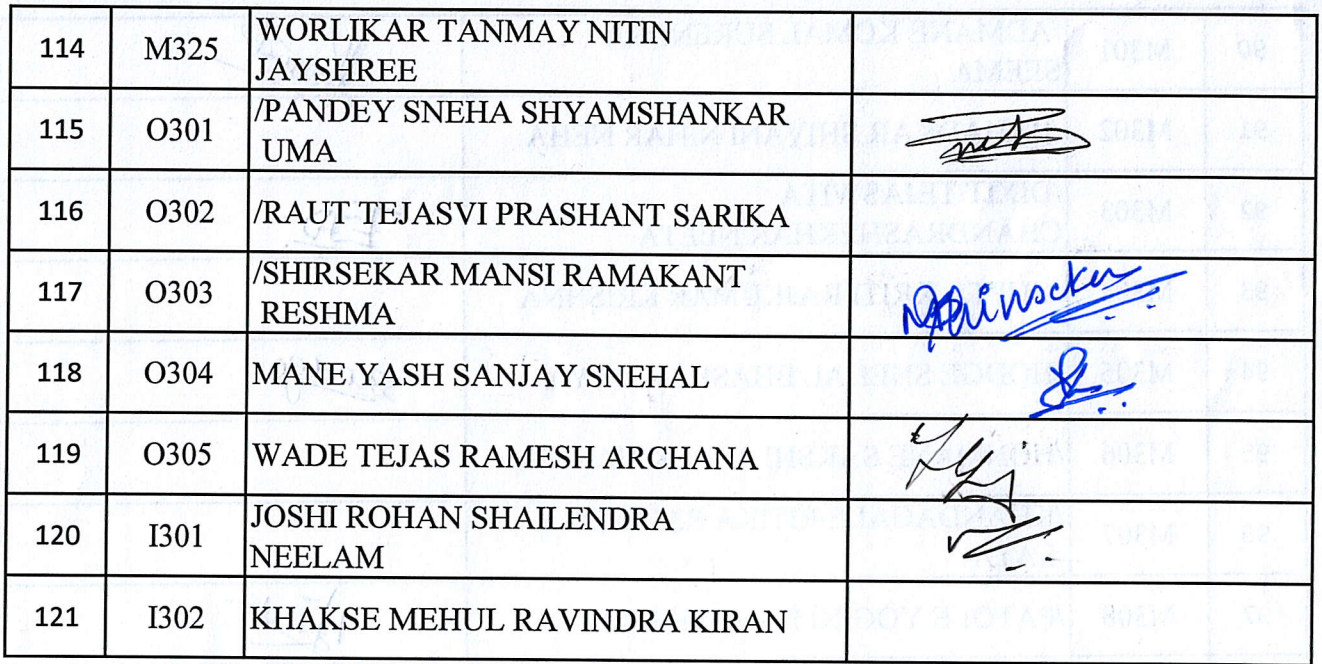 114 M325 WORLIKAR TANMAY NITIN
JAYSHREE
115 O301 /PANDEY SNEHA SHYAMSHANKAR
UMA
116 O302 /RAUT TEJASVI PRASHANT SARIKA
117 O303 /SHIRSEKAR MANSI RAMAKANT
RESHMA
118 O304 MANE YASH SANJAY SNEHAL
119 O305 WADE TEJAS RAMESH ARCHANA
120 I301 JOSHI ROHAN SHAILENDRA
NEELAM
121 I302 KHAKSE MEHUL RAVINDRA KIRAN